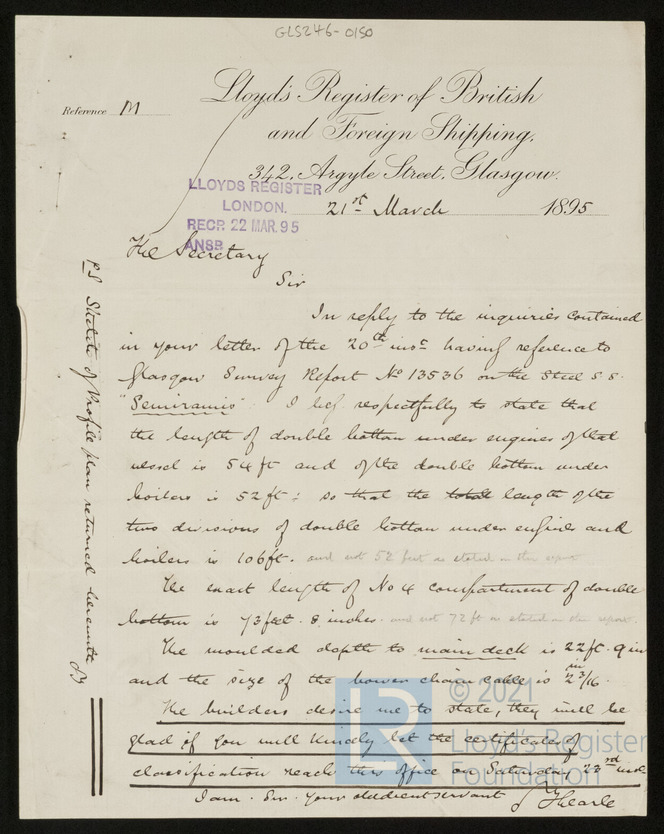 GLS246-0150
Reference M
Lloyd's Register of British
and Foreign Shipping,
342, Argyle Street, Glasgow.
LLOYDS REGISTER
LONDON.
RECP. 22 MAR. 95
ANSR
21st March 1895
The Secretary
Sir
In reply to the inquiries contained
in your letter of the 20th inst having reference to
Glasgow Survey Report No 13536 on the Steel S.S.
"Semiramis" I beg respectfully to state that
the length of double bottom under engines of that
vessel is 54 ft and of the double bottom under
boilers is 52 ft: so that the total length of the
two divisions of double bottom under engines and
boilers is 106 ft. and not 52 feet as stated in the report
The exact length of No 4 compartment of double
bottom is 73 feet. 8 inches. and not 72 ft as stated in the report.
The moulded depth to main deck is 22 ft. 9 in
and the size of the bower chain cable is 2 3/16 in
The builders desire me to state, they will be
glad if you will kindly let the certificate of
classification reach this office on Saturday 23rd inst.
I am. Sir. your obedient servant
Hearle
PS Sketch of Profile plan returned herewith
LR
© 2021
Lloyd's Register
Foundation